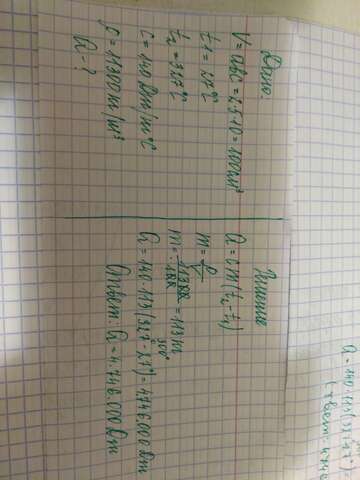 Дано:
V = abc = 2·5·10 = 100 см³
t1 = 27°C
t2 = 327°C
C = 140 Дж/кг°C
ρ = 11300 кг/м³
Q - ?
Решение
Q = cm(t2 - t1)
m = ρ/V
m = 11300/100 = 113 кг
300°
Q = 140·113(327-27°) = 4746000 Дж
Ответ: Q = 4.746.000 Дж